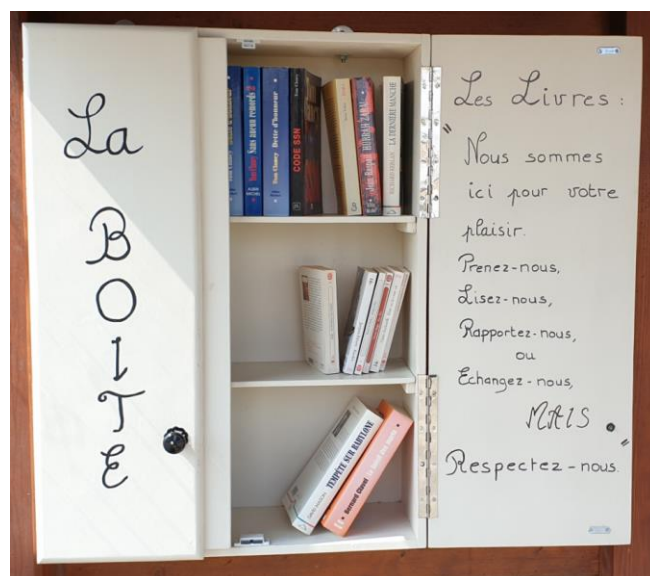 La
BOITE
Sans aucun remords 2
Tom Clancy Dette d'honneur
CODE SSN
Jean Raspail HURRAH ZARA!
LA DERNIÈRE MANCHE
TEMPÊTE SUR BABYLONE
Bernard Clavel
Les Livres :
" Nous sommes
ici pour votre
plaisir.
Prenez-nous,
Lisez-nous,
Rapportez-nous,
ou
Echangez-nous,
MAIS
Respectez-nous. "